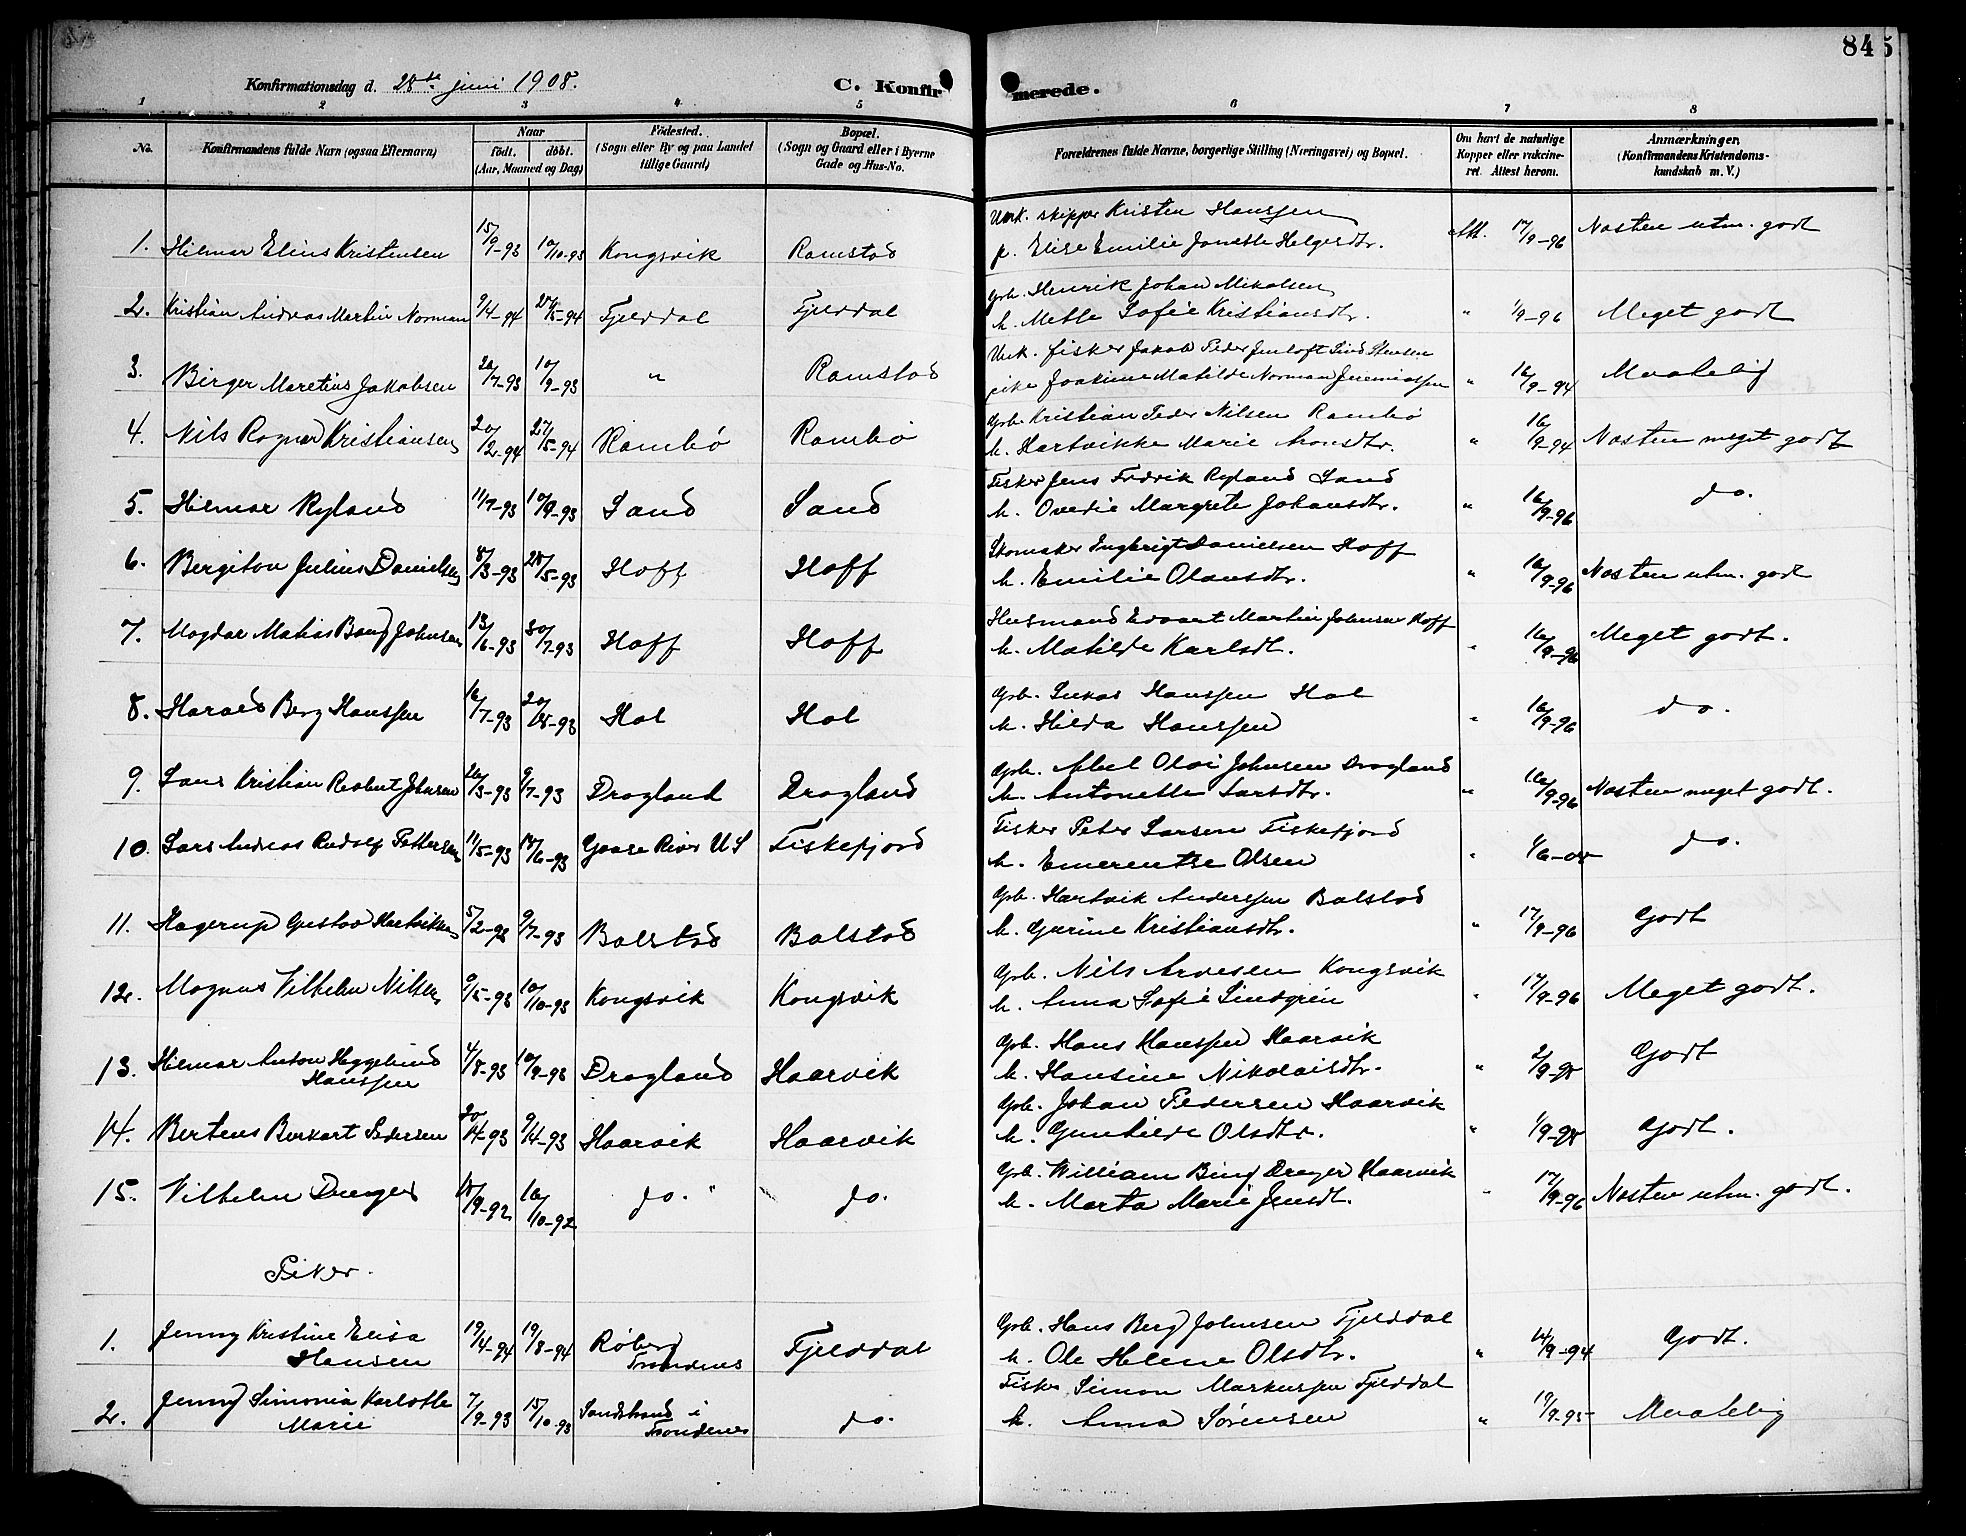 84
5
Konfirmationsdag d. 28de juni 1908.
C. Konfirmerede.
1 2 3 4 5 6 7 8
No. Konfirmandens fulde Navn (ogsaa Efternavn) Naar født. døbt. (Aar, Maaned og Dag) Fødested. (Sogn eller By og paa Landet tillige Gaard) Bopæl. (Sogn og Gaard eller i Byerne Gade og Hus-No. Forældrenes fulde Navne, borgerlige Stilling (Næringsvei) og Bopæl. Om havt de naturlige Kopper eller vakcineret. Attest herom. Anmærkninger. (Konfirmandens Kristendomskundskab m. V.)
1. Hilmar Elius Kristensen 15/9-93 10/10-93 Kongsvik Ramstad Unk. skipper Kristen Hanssen p. Elise Emilie Janette Helgesdtr. Att. 17/9-96 Næsten utm. godt
2. Kristian Andreas Martin Norman 9/4-94 20/5-94 Fjelddal Fjelddal Grb. Henrik Johan Mikalsen h. Mette Sofie Kristiansdtr. " 1/9-96 Meget godt
3. Birger Maretius Jakobsen 20/7-93 10/9-93 " Ramstad Unk. fisker Jakob Peder Stensen pike Joakime Matilde Norman Jeremiassen " 16/9-94 Maatelig
4. Nils Ragnar Kristiansen 20/2-94 27/5-94 Rambø Rambø Grb. Kristian Peder Nilsen Rambø h. Hartvikke Marie Aronsdtr. " 16/9-94 Næsten meget godt
5. Hilmar Ryland 11/7-93 10/9-93 Sand Sand Fisker Jens Fredrik Ryland Sand h. Ovedie Margrete Johansdtr. " 16/9-96 do.
6. Bergiton Julius Danielsen 8/3-93 28/5-93 Hoff Hoff Skomaker Ingbrigt Danielsen Hoff h. Emilie Olausdtr. " 16/9-96 Næsten utm. godt
7. Magdar Matias Bang Johnsen 13/6-93 30/7-93 Hoff Hoff Husmand Edvart Martin Johnsen Hoff h. Matilde Karlsdt. " 16/9-96 Meget godt.
8. Harald Berg Hanssen 16/7-93 20/8-93 Hol Hol Grb. Lukas Hanssen Hol h. Hilda Hanssen " 16/9-96 do.
9. Lars Kristian Reobert Johnsen 26/3-93 9/7-93 Dragland Dragland Grb. Abel Olai Johnsen Dragland h. Antonette Larsdtr. " 16/9-96 Næsten meget godt.
10. Lars Andreas Rudolf Pettersen 11/5-93 18/6-93 Goose River U S Fiskefjord Fisker Peter Larsen Fiskefjord h. Emerentse Olsen " 1/6-08 do.
11. Hagerup Gustav Hartviksen 5/2-93 9/7-93 Balstad Balstad Grb. Hartvik Anderssen Balstad h. Gurine Kristiansdtr. " 17/9-96 Godt
12. Magnus Vilhelm Nilsen 9/5-93 10/10-93 Kongsvik Kongsvik Grb. Nils Arvesen Kongsvik h. Anna Sofie Lindgren " 17/9-96 Meget godt.
13. Hilmar Anton Heggelund Hanssen 4/8-93 10/9-93 Dragland Haarvik Grb. Hans Hanssen Haarvik h. Hansine Nikolaisdtr. " 2/9-98 Godt
14. Berteus Burkart Pedersen 20/4-93 9/4-93 Haarvik Haarvik Grb. Johan Pedersen Haarvik h. Gunhilde Olsdtr. " 1/9-98 Godt.
15. Vilhelm Dreyer 18/9-92 16/10-92 do. do. Grb. William Bing Dreyer Haarvik h. Marta Marie Jensdt. " 17/9-96 Næsten utm. godt.
Piker.
1. Jenny Kristine Elisa Hansen 19/4-94 19/8-94 Røberg Trondenes Fjelddal Grb. Hans Berg Johnsen Fjelddal h. Ole Helene Olsdtr. " 14/9-94 Godt.
2. Jenny Simonia Karlotte Marie 7/9-93 15/10-93 Sandstrand i Trondenes do. Fisker Simon Markussen Fjelddal h. Anna Sørensen " 19/9-95 Maatelig